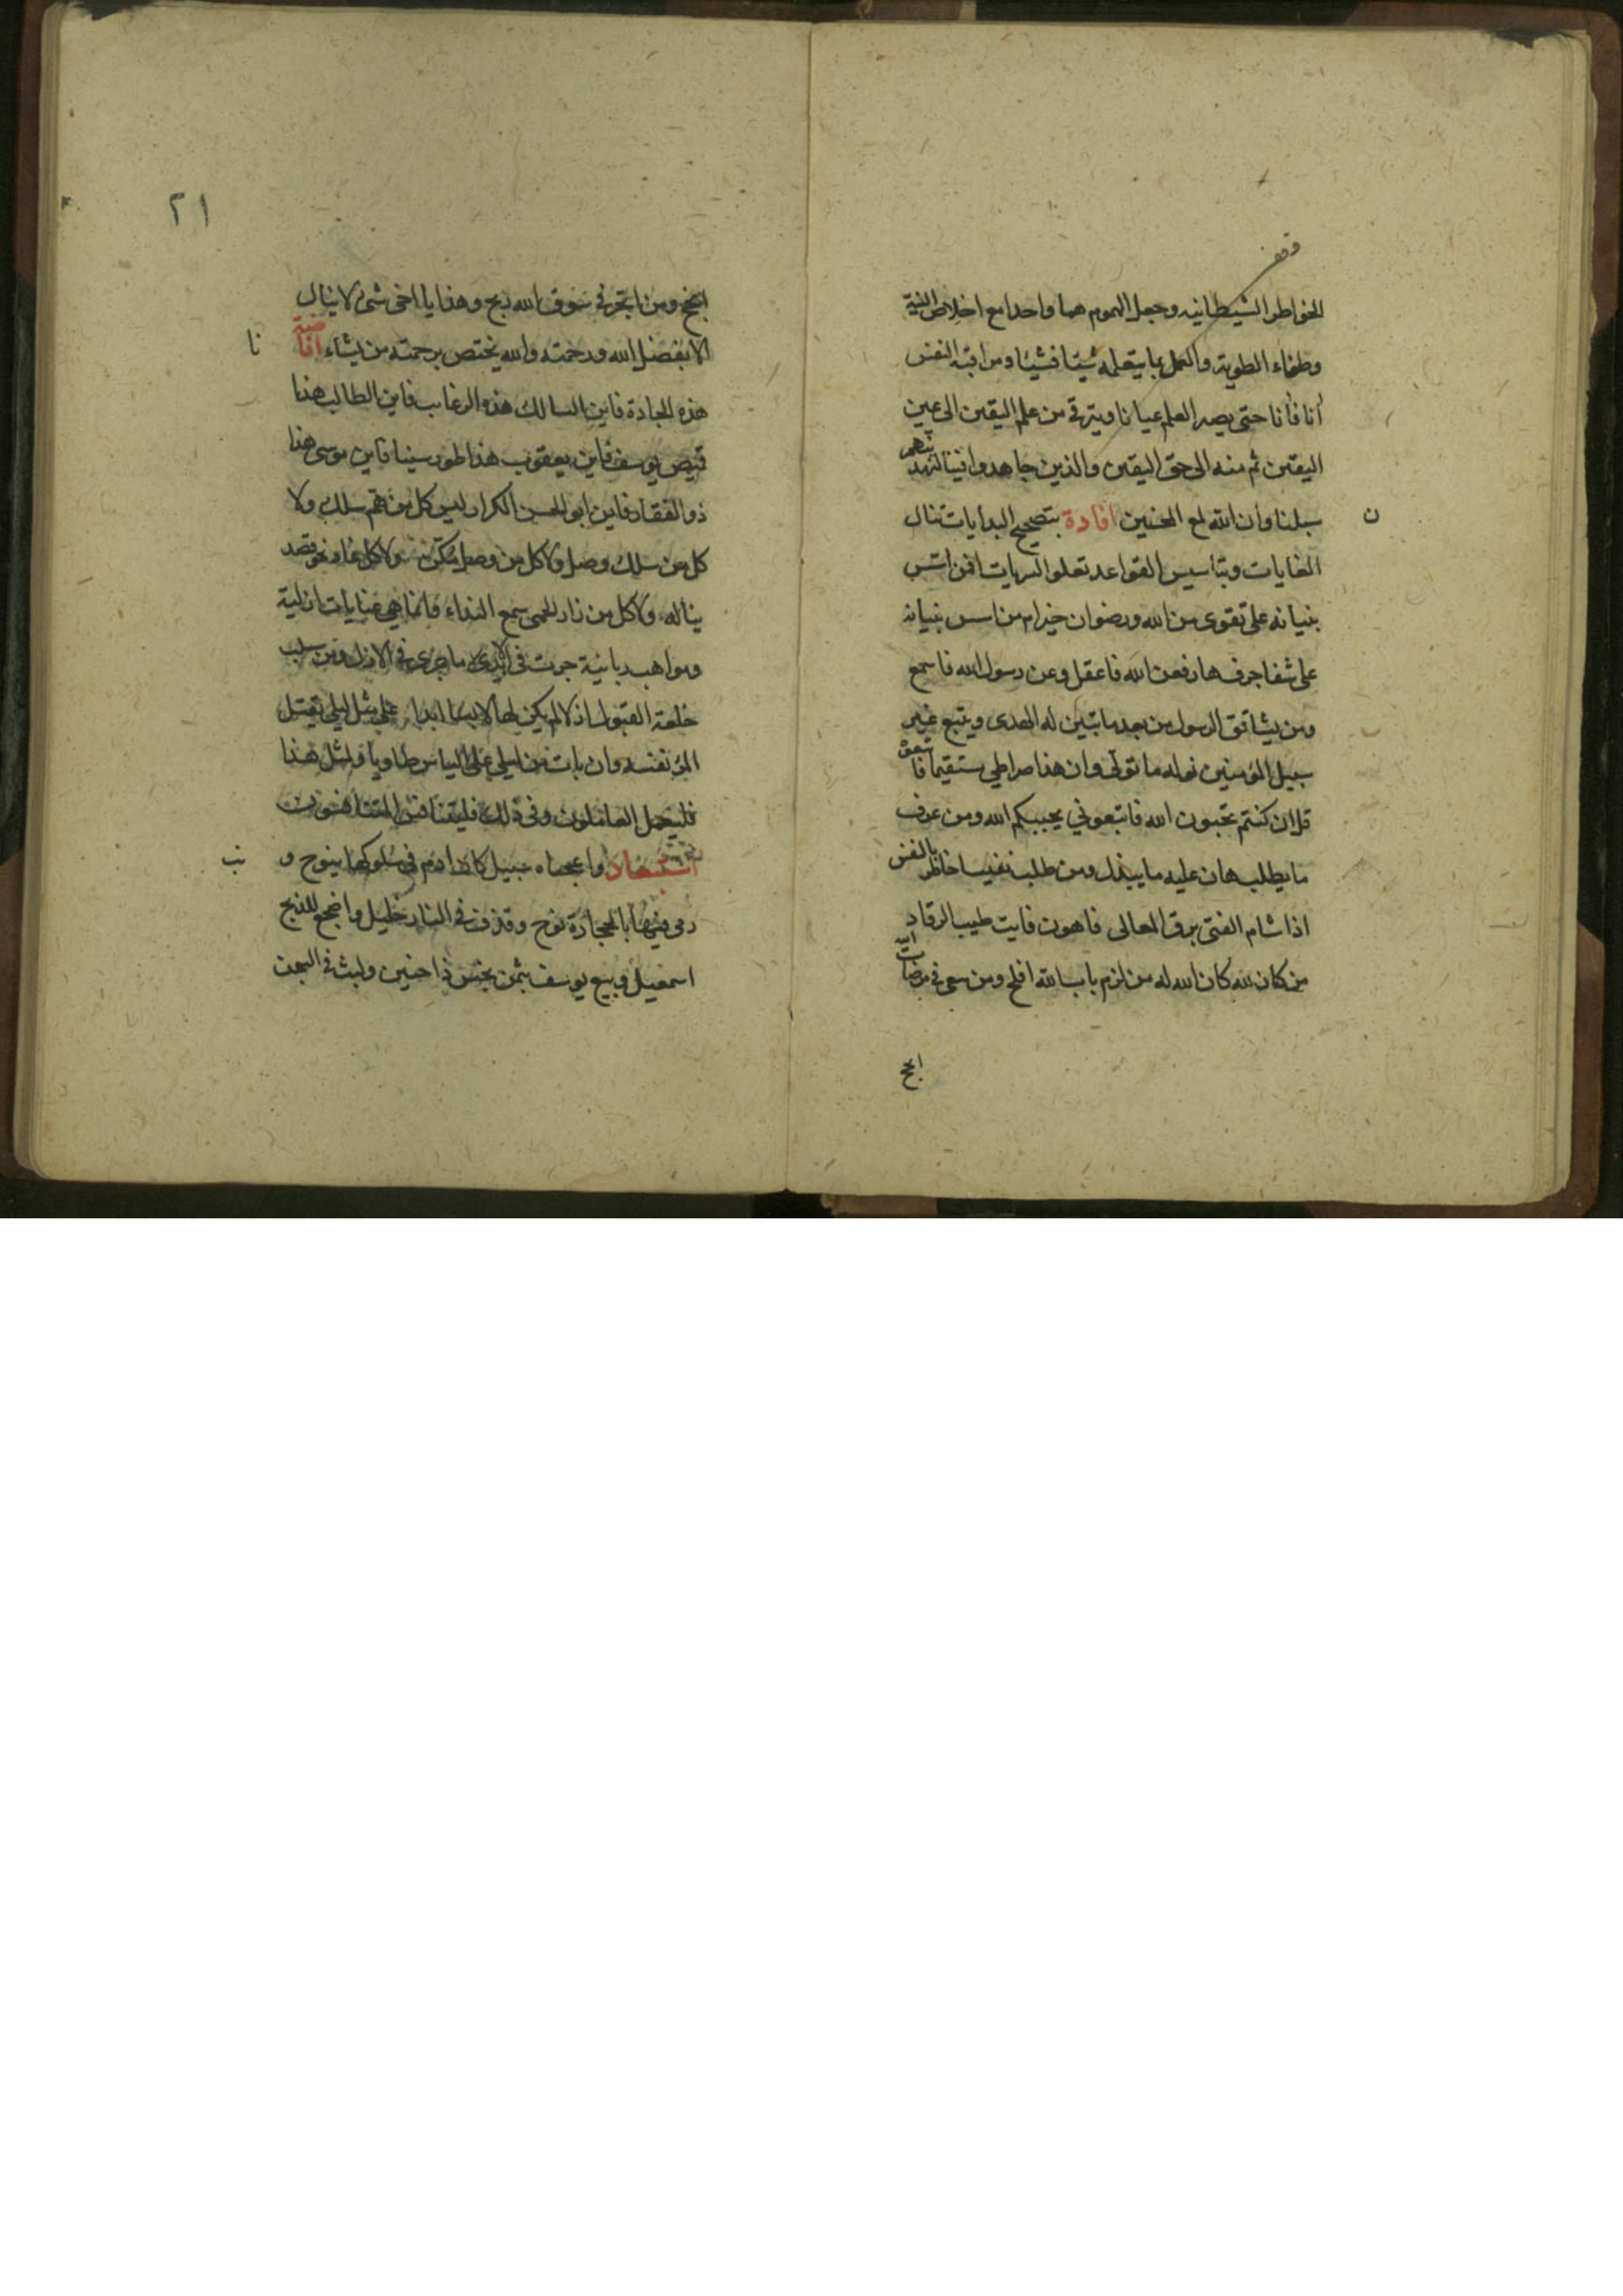 وقف
الخواطر الشيطانيه وجعل الهموم هما واحدا مع اخلاص النية
وصفاء الطوية والعمل بما يتعلمه شيئا فشيئا ومراقبة النفس
أنا فأنا حتى يصير العلم عيانا ويترقى من علم اليقين الى عين
اليقين ثم منه الى حق اليقين والذين جاهدوا فينا لنهدينهم
سبلنا وان الله لمع المحسنين افادة بتصحيح البدايات تنال
ن
الغايات وبتاسيس القواعد تعلوا السريات افمن اسس
بنيانه على تقوى من الله ورضوان خير ام من اسس بنيانه
على شفا جرف هار فعن الله فاعقل وعن رسول الله فاسمع
ومن يشاقق الرسول من بعد ما تبين له الهدى ويتبع غير
سبيل المؤمنين نوله ما تولى وان هذا صراطي مستقيما فاتبعوه
قل ان كنتم تحبون الله فاتبعوني يحببكم الله ومن عرف
ما يطلب هان عليه ما يبذل ومن طلب نفيسا خاطر بالنفس
اذا شام الفتى برق المعالى فاهون فايت طيب الرقاد
من كان لله كان الله له من لزم باب الله افلح ومن سعى في مرضات الله
انجح
٢١
انجح ومن اتجر في سوق الله ربح وهذا يا اخى شئ لا ينال
الا بفضل الله ورحمته والله يختص برحمته من يشاء افاضة
نا
هذه الجادة فاين السالك هذه الرغايب فاين الطالب هذا
قميص يوسف فاين يعقوب هذا طور سينا فاين موسى هذا
ذو الفقار فاين ابو الحسن الكرار ليس كل من هم سلك ولا
كل من سلك وصل ولا كل من وصل تمكن ولا كل من قصد
يناله ولا كل من زار الحمى سمع النداء فانما هي عنايات ازلية
ومواهب ربانية جرت في الابد ما جرى في الازل ومن سلب
خلعة القبول اذ لا لم يكن لها لابسا ابدا على مثل ليلى يقتل
المرء نفسه وان بات من ليلى على الياس طاويا ولمثل هذا
فليعمل العاملون وفى ذلك فليتنافس المتنافسون
واعجباه سبيل كان ادم في سلوكها ينوح و
نب
رمى فيها بالحجارة نوح وقذف في النار خليل واضجع للذبح
اسمعيل وبيع يوسف بثمن بخس ذا حنين ولبث في السجن